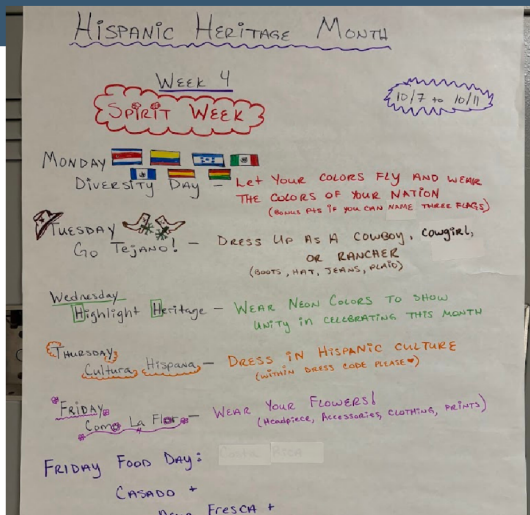 HISPANIC HERITAGE MONTH
WEEK 4
SPIRIT WEEK
10/7 to 10/11
MONDAY
DIVERSITY DAY - LET YOUR COLORS FLY AND WEAR
THE COLORS OF YOUR NATION
(BONUS PTS IF YOU CAN NAME THREE FLAGS)
TUESDAY
GO TEJANO! - DRESS UP AS A COWBOY, COWGIRL,
OR RANCHER
(BOOTS, HAT, JEANS, PLAID)
Wednesday
Highlight Heritage - WEAR NEON COLORS TO SHOW
UNITY in CELEBRATING THIS MONTH
THURSDAY
Cultura Hispana - DRESS IN HISPANIC CULTURE
(WITHIN DRESS CODE PLEASE)
FRIDAY
Como La Flor - WEAR YOUR FLOWERS!
(Headpiece, Accessories, CLOTHING, PRINTS)
FRIDAY FOOD DAY:
CASADO +
FRESCA +